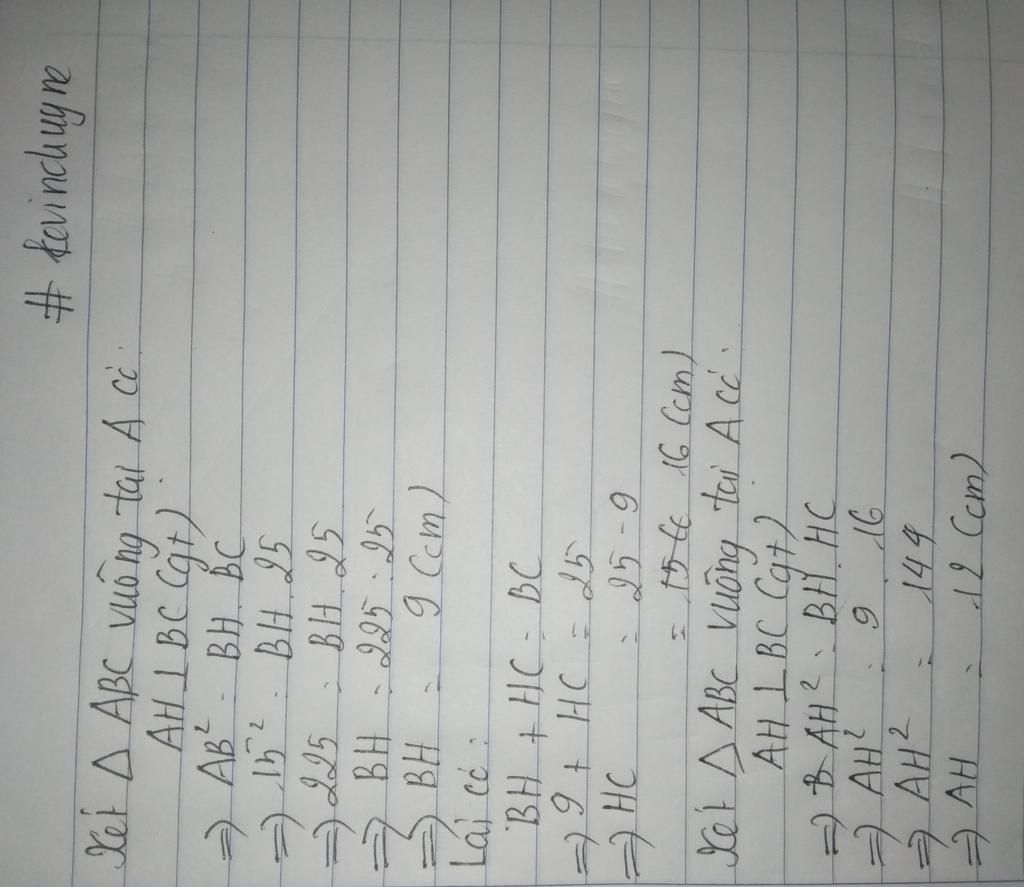 # kevinchuyne
Xét Δ ABC vuông tại A có:
AH ⊥ BC (gt)
=> AB² = BH . BC
=> 15² = BH . 25
=> 225 = BH . 25
=> BH = 225 : 25
=> BH = 9 (cm)
Lại có:
BH + HC = BC
=> 9 + HC = 25
=> HC = 25 - 9
= 16 (cm)
Xét Δ ABC vuông tại A có:
AH ⊥ BC (gt)
=> AH² = BH . HC
=> AH² = 9 . 16
=> AH² = 144
=> AH = 12 (cm)